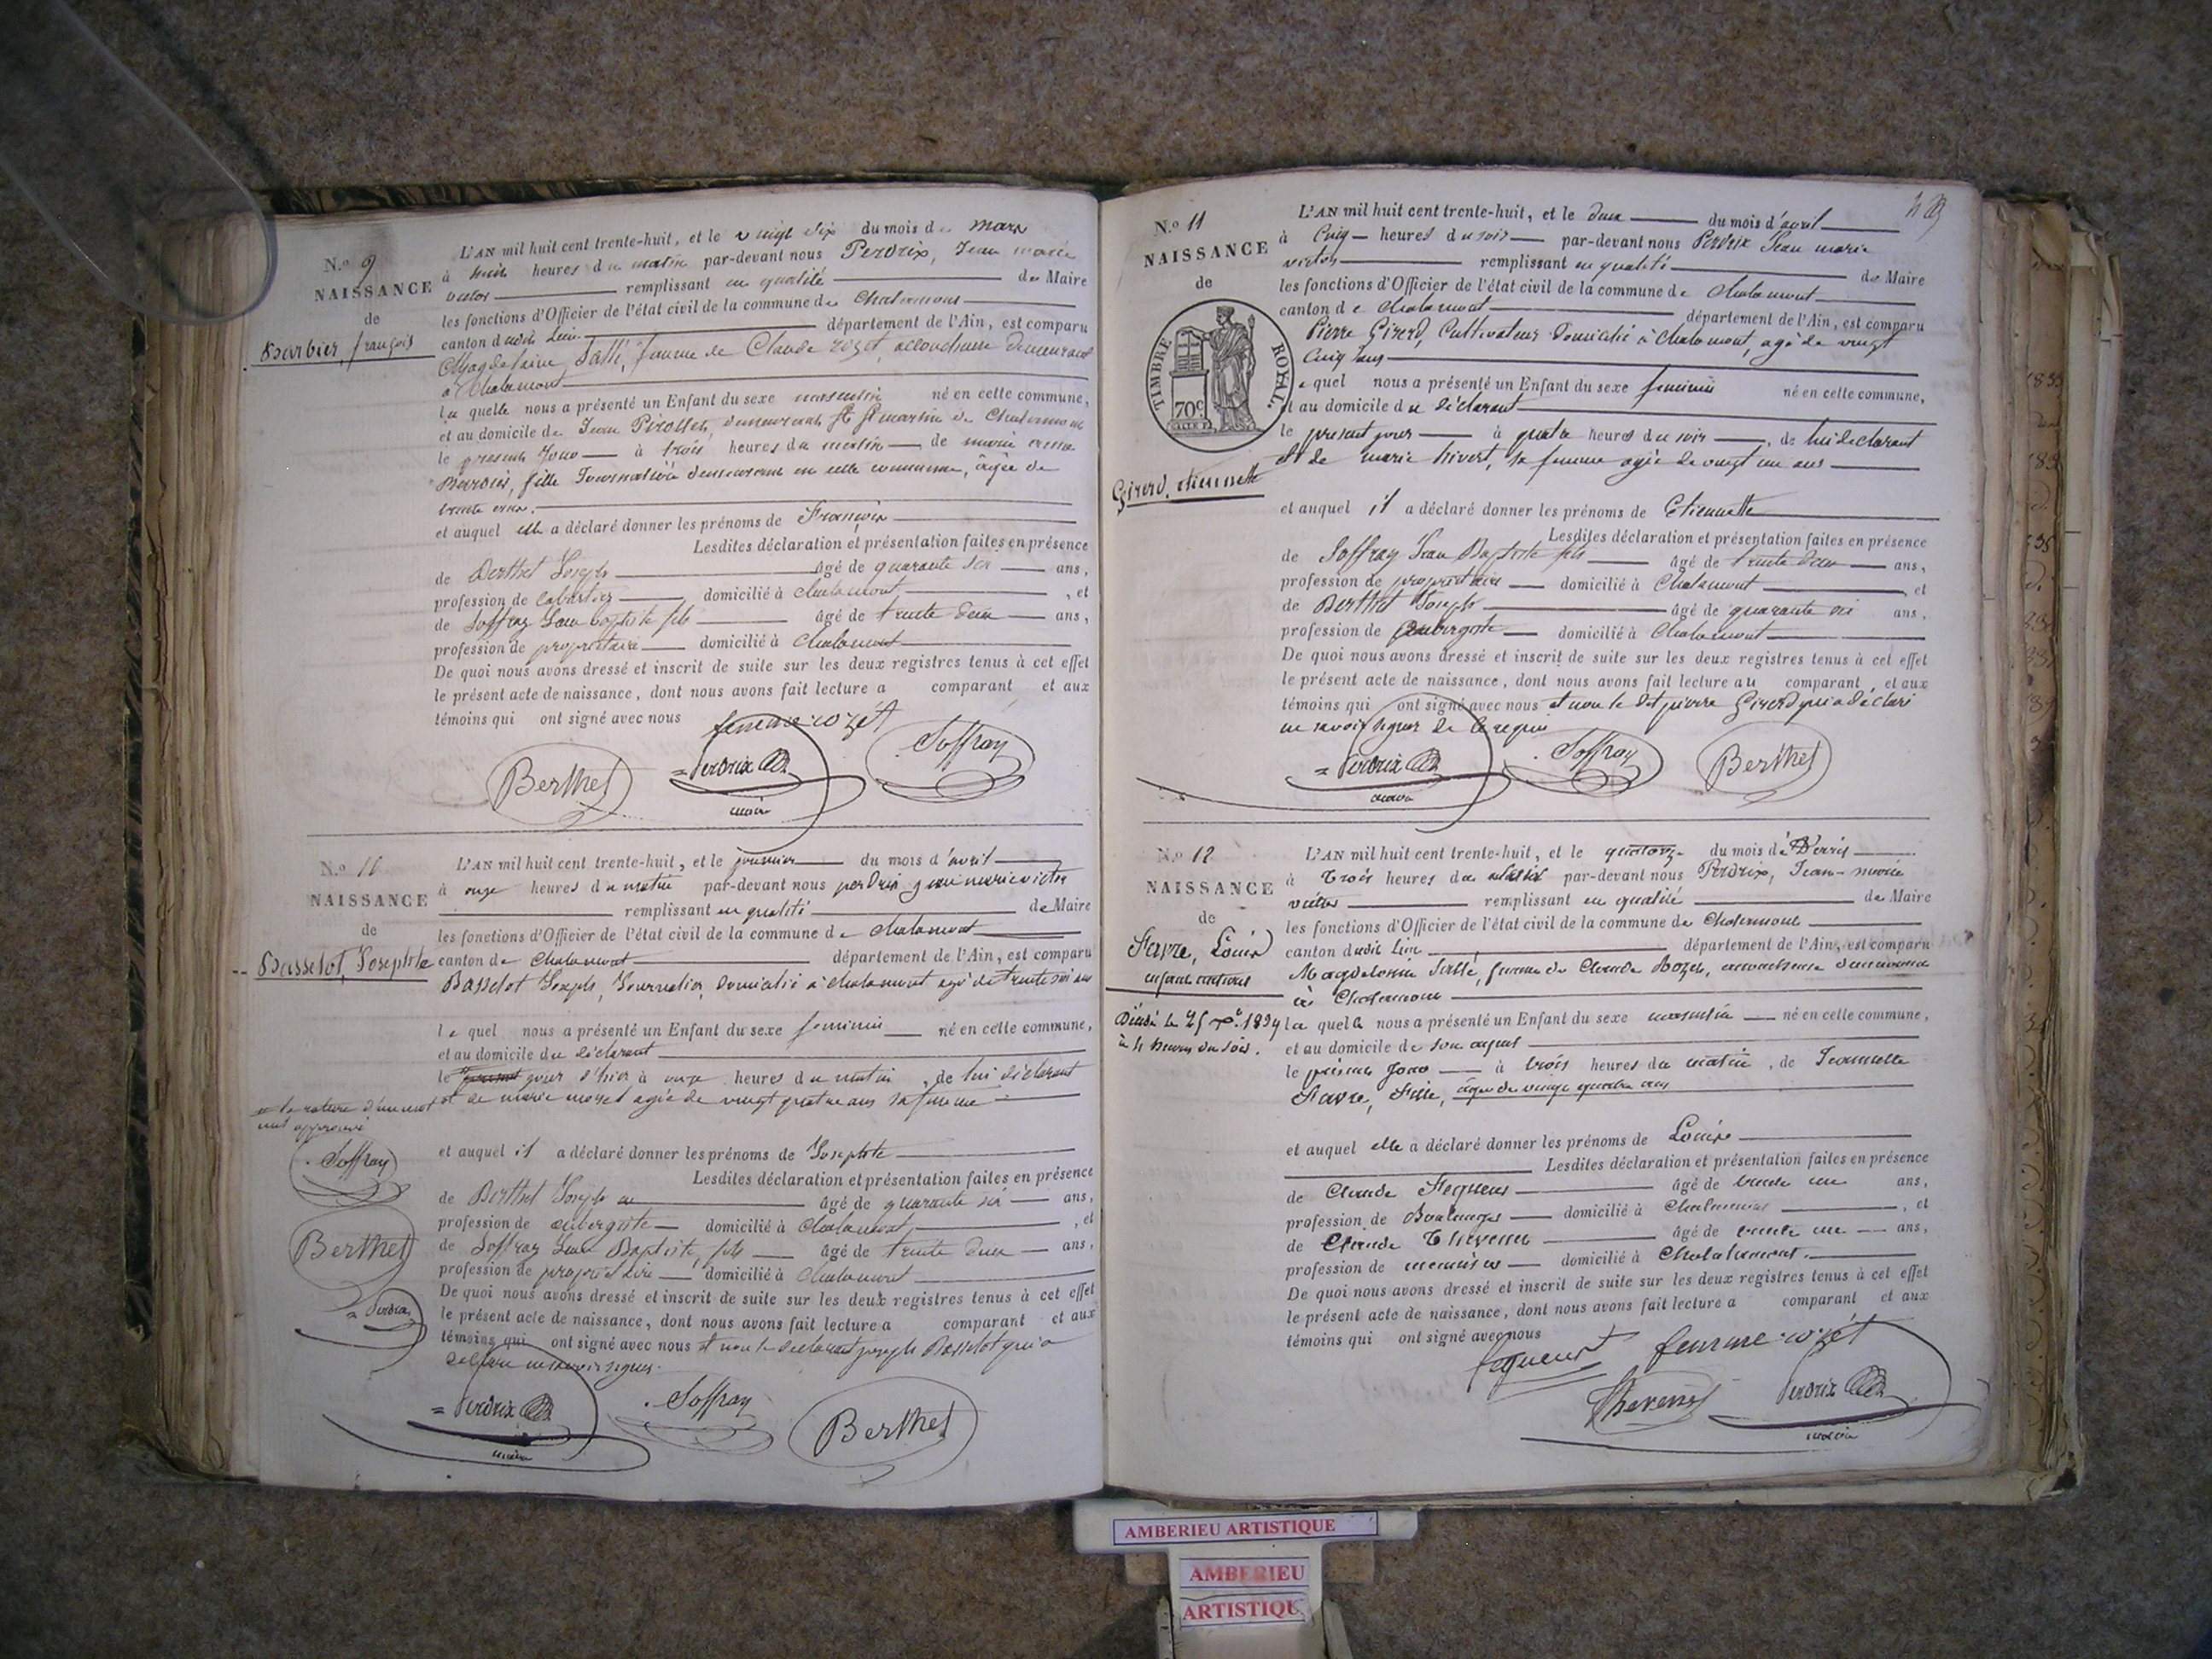 N.o 9
NAISSANCE
de
Barbier, françois
L'AN mil huit cent trente-huit, et le vingt six du mois de mars
à huit heures du matin par-devant nous Perdrix, Jean marie
victor remplissant en qualité de Maire
les fonctions d'Officier de l'état civil de la commune de Chalamont
canton dudit Lieu département de l'Ain, est comparu
Magdelaine Tassi, femme de Claude rozet, accoucheuse demeurant
à Chalamont
la quelle nous a présenté un Enfant du sexe masculin né en cette commune,
et au domicile de Jean demeurant St martin de Chalamont
le présent Jour à trois heures du matin de marie
Barbier, fille Journalière demeurant en cette commune, âgée de
trente
et auquel elle a déclaré donner les prénoms de François
Lesdites déclaration et présentation faites en présence
de Berthet Joseph âgé de quarante six ans,
profession de cabartier domicilié à chalamont, et
de Joffray Jean baptiste fils âgé de trente deux ans,
profession de propriétaire domicilié à chalamont
De quoi nous avons dressé et inscrit de suite sur les deux registres tenus à cet effet
le présent acte de naissance, dont nous avons fait lecture a comparant et aux
témoins qui ont signé avec nous
femme rozét
Berthet Perdrix Joffray
maire
N.o 10
NAISSANCE
de
Basselot, Josephte
L'AN mil huit cent trente-huit, et le premier du mois d'avril
à onze heures du matin par-devant nous perdrix jean marie victor
remplissant en qualité de Maire
les fonctions d'Officier de l'état civil de la commune de chalamont
canton de Chalamont département de l'Ain, est comparu
Basselot Joseph, Journalier, domicilié à chalamont agé de trente six ans
le quel nous a présenté un Enfant du sexe feminin né en cette commune,
et au domicile du déclarant
le present jour d'hier à onze heures du matin, de lui déclarant
et de marie morel agée de vingt quatre ans sa femme
la rature d'un mot
nul approuvé
Joffray
Berthet
Perdrix
et auquel il a déclaré donner les prénoms de Josephte
Lesdites déclaration et présentation faites en présence
de Berthet Joseph âgé de quarante six ans,
profession de aubergiste domicilié à chalamont, et
de Joffray Jean Baptiste, fils âgé de trente deux ans,
profession de propriétaire domicilié à chalamont
De quoi nous avons dressé et inscrit de suite sur les deux registres tenus à cet effet
le présent acte de naissance, dont nous avons fait lecture a comparant et aux
témoins qui ont signé avec nous et non le declarant joseph Basselot qui a
déclaré ne savoir signer.
Perdrix Joffray Berthet
maire
N.o 11
NAISSANCE
de
TIMBRE ROYAL.
70c
Girerd, etiennette
L'AN mil huit cent trente-huit, et le deux du mois d'avril
à Cinq heures du soir par-devant nous Perdrix Jean marie
victor remplissant en qualité de Maire
les fonctions d'Officier de l'état civil de la commune de chalamont
canton de chalamont département de l'Ain, est comparu
Pierre Girerd, Cultivateur domicilié à chalamont, agé de vingt
Cinq ans
le quel nous a présenté un Enfant du sexe feminin né en cette commune,
et au domicile du déclarant
le present jour à quatre heures du soir, de lui declarant
et de marie hivert, sa femme agée de vingt un ans
et auquel il a déclaré donner les prénoms de Etiennette
Lesdites déclaration et présentation faites en présence
de Joffray Jean Baptiste fils âgé de trente deux ans,
profession de propriétaire domicilié à Chalamont, et
de Berthet Joseph âgé de quarante six ans.
profession de aubergiste domicilié à Chalamont
De quoi nous avons dressé et inscrit de suite sur les deux registres tenus à cet effet
le présent acte de naissance, dont nous avons fait lecture au comparant et aux
témoins qui ont signé avec nous et non le dit pierre Girerd qui a déclaré
ne savoir signer de ce requis
Perdrix Joffray Berthet
maire
N.o 12
NAISSANCE
de
Favre, Louis
enfant naturel
Décédé le 25 1834
à 4 heures du soir.
L'AN mil huit cent trente-huit, et le quatorze du mois d'avril
à trois heures du par-devant nous Perdrix, Jean-marie
victor remplissant en qualité de Maire
les fonctions d'Officier de l'état civil de la commune de Chalamont
canton dudit Lieu département de l'Ain, est comparu
Magdelaine Tassi, femme de Claude Rozet, accoucheuse demeurant
à Chalamont
la quelle nous a présenté un Enfant du sexe masculin né en cette commune,
et au domicile de son
le présent Jour à trois heures du matin, de Jeannette
Favre, fille, âgée de vingt quatre ans
et auquel elle a déclaré donner les prénoms de Louis
Lesdites déclaration et présentation faites en présence
de Claude Fequent âgé de trente un ans,
profession de Boulanger domicilié à Chalamont, et
de Claude Thevenet âgé de trente un ans,
profession de menuisier domicilié à Chalamont.
De quoi nous avons dressé et inscrit de suite sur les deux registres tenus à cet effet
le présent acte de naissance, dont nous avons fait lecture a comparant et aux
témoins qui ont signé avec nous
fequent femme rozét
Thevenet Perdrix
maire
AMBERIEU ARTISTIQUE
AMBERIEU
ARTISTIQUE